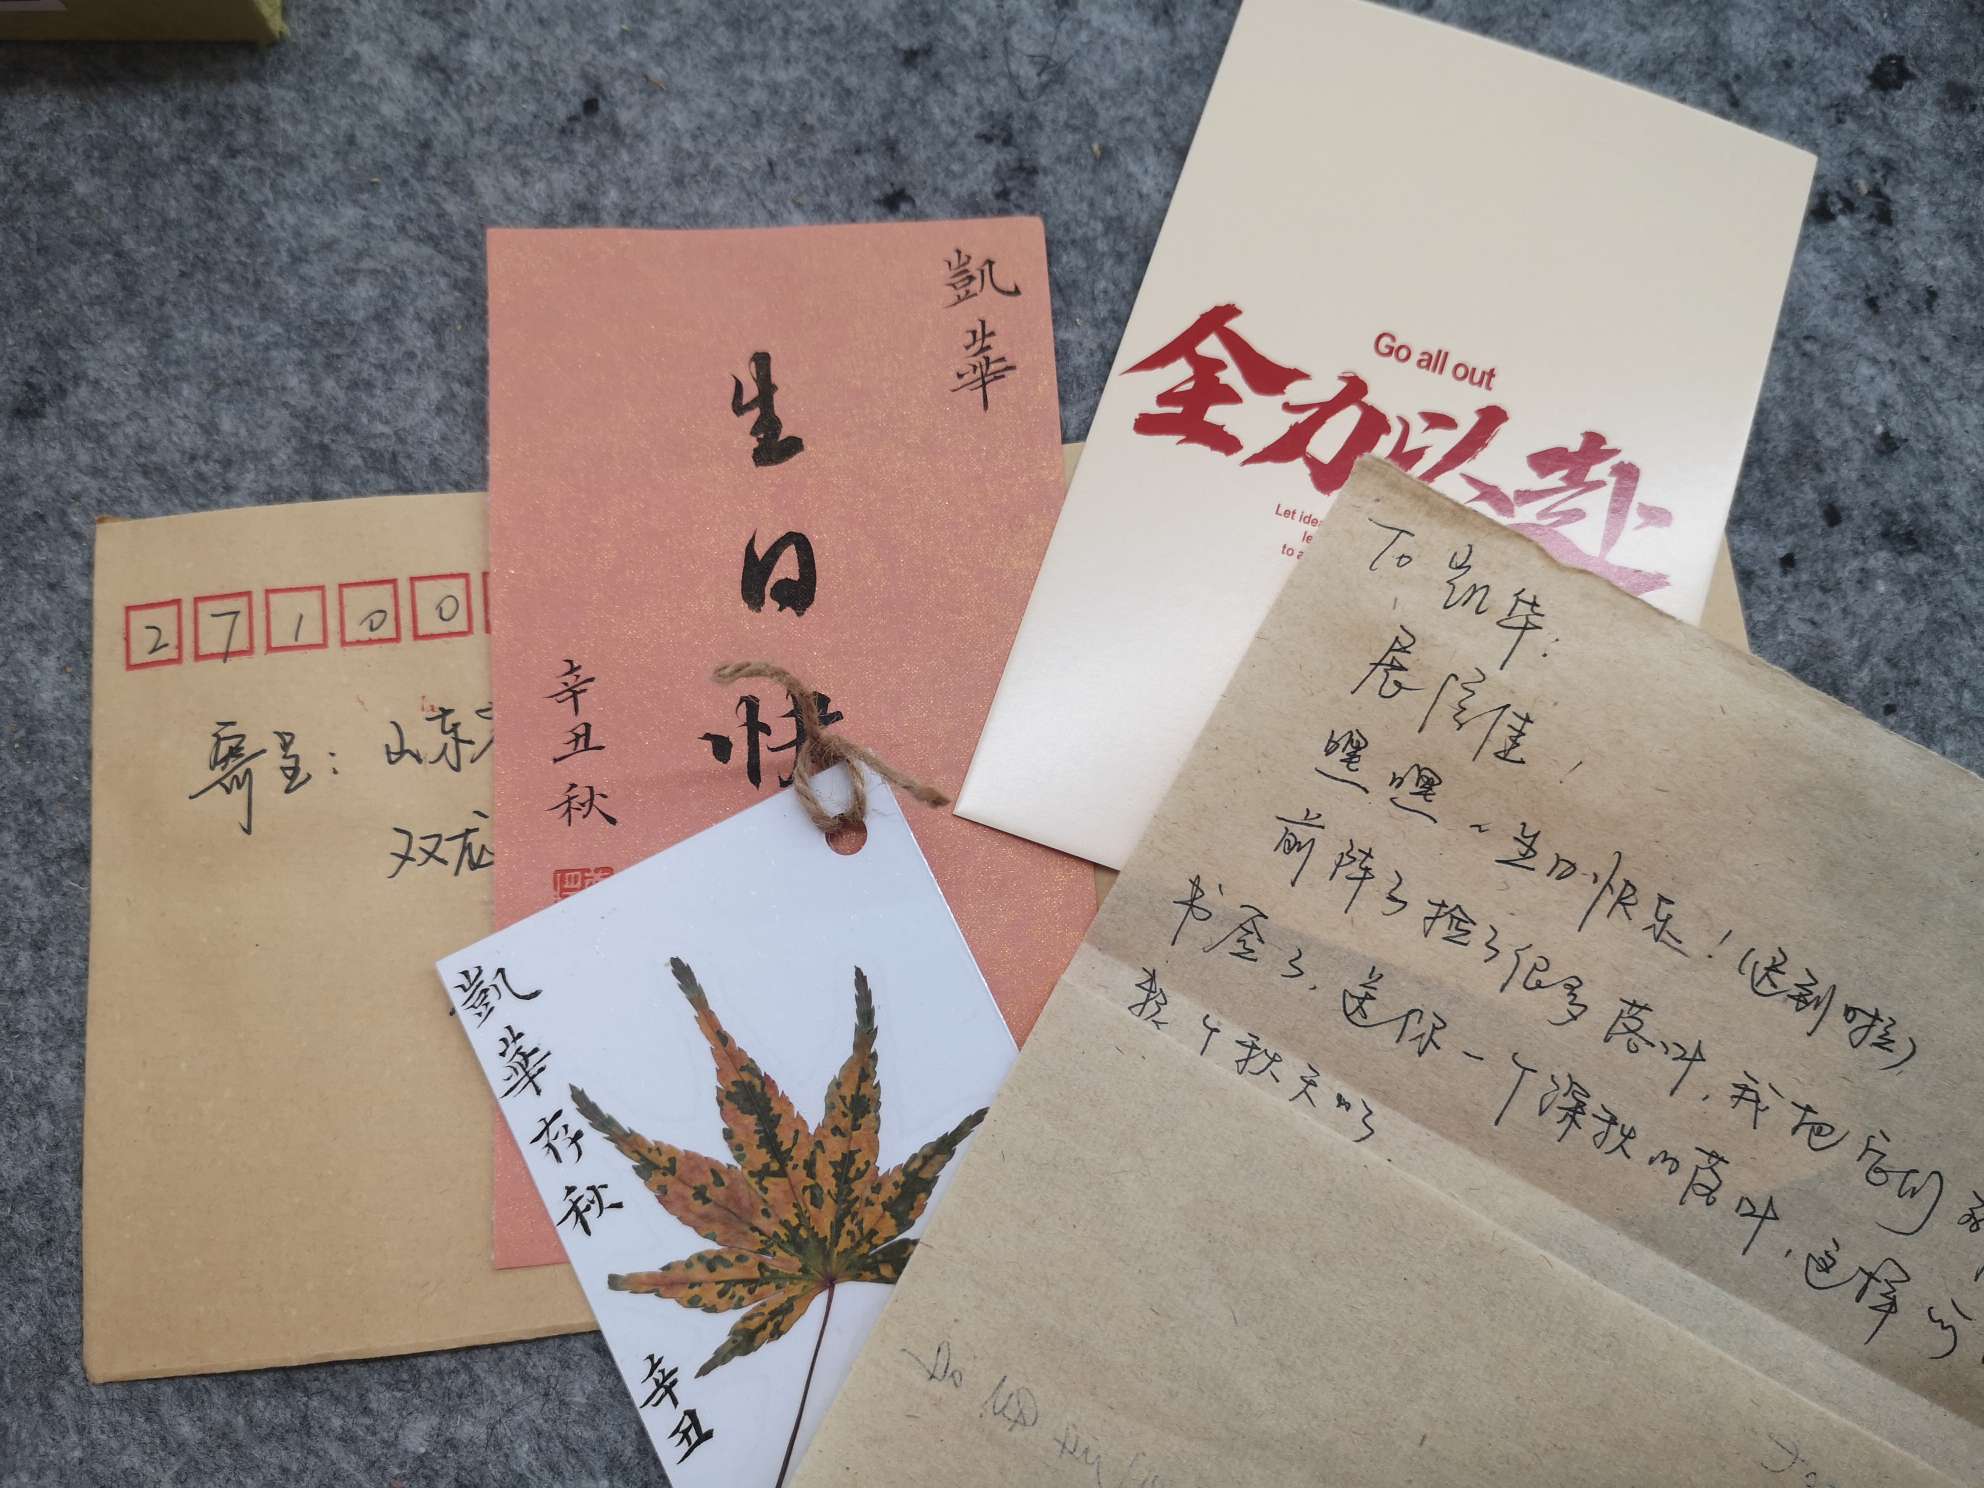 27100
寄呈：山东
双龙
凱華
生日快
辛丑秋
Go all out
全力以赴
Let ide
le
to a
凱華存秋
辛丑
To 凯华：
展信佳！
嘿嘿～生日快乐！（迟到啦）
前阵子捡了很多落叶，我把它们
书签了，送你一个深秋的落叶，这样
整个秋天的了